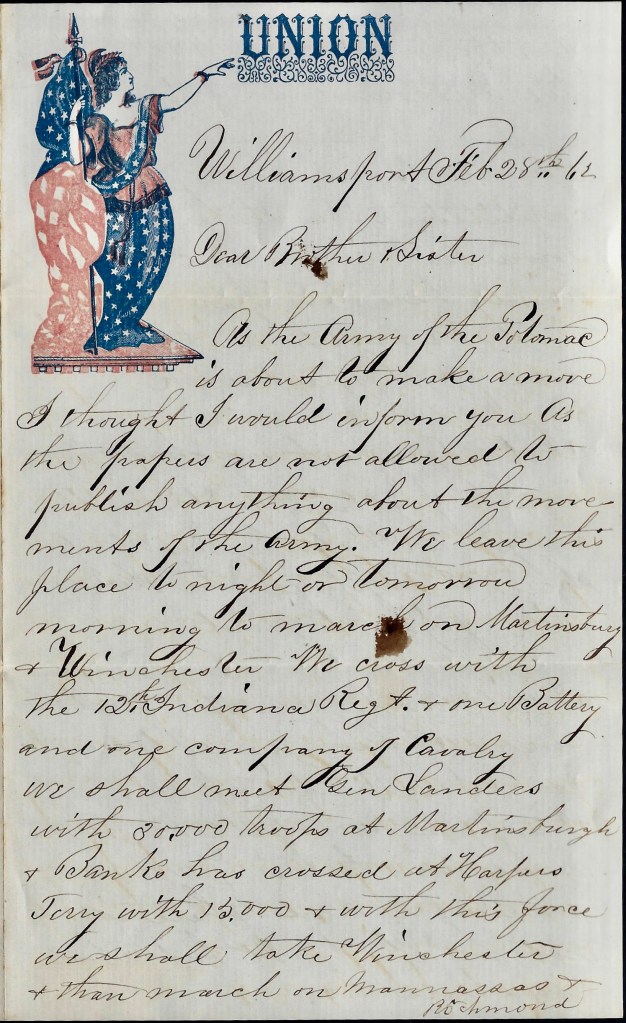 UNION
Williamsport Feb 28th 62
Dear Brother & Sister
As the Army of the Potomac
is about to make a move
I thought I would inform you As
the papers are not allowed to
publish anything about the move
ments of the Army. We leave this
place to night or tomorrow
morning to march on Martinsburg
& Winchester We cross with
the 12th Indiana Regt. & one Battery
and one company of Cavalry
we shall meet Gen Landers
with 30,000 troops at Martinsburgh
& Banks has crossed at Harpers
Ferry with 15,000 & with this force
we shall take Winchester
& than march on Mannassas &
Richmond